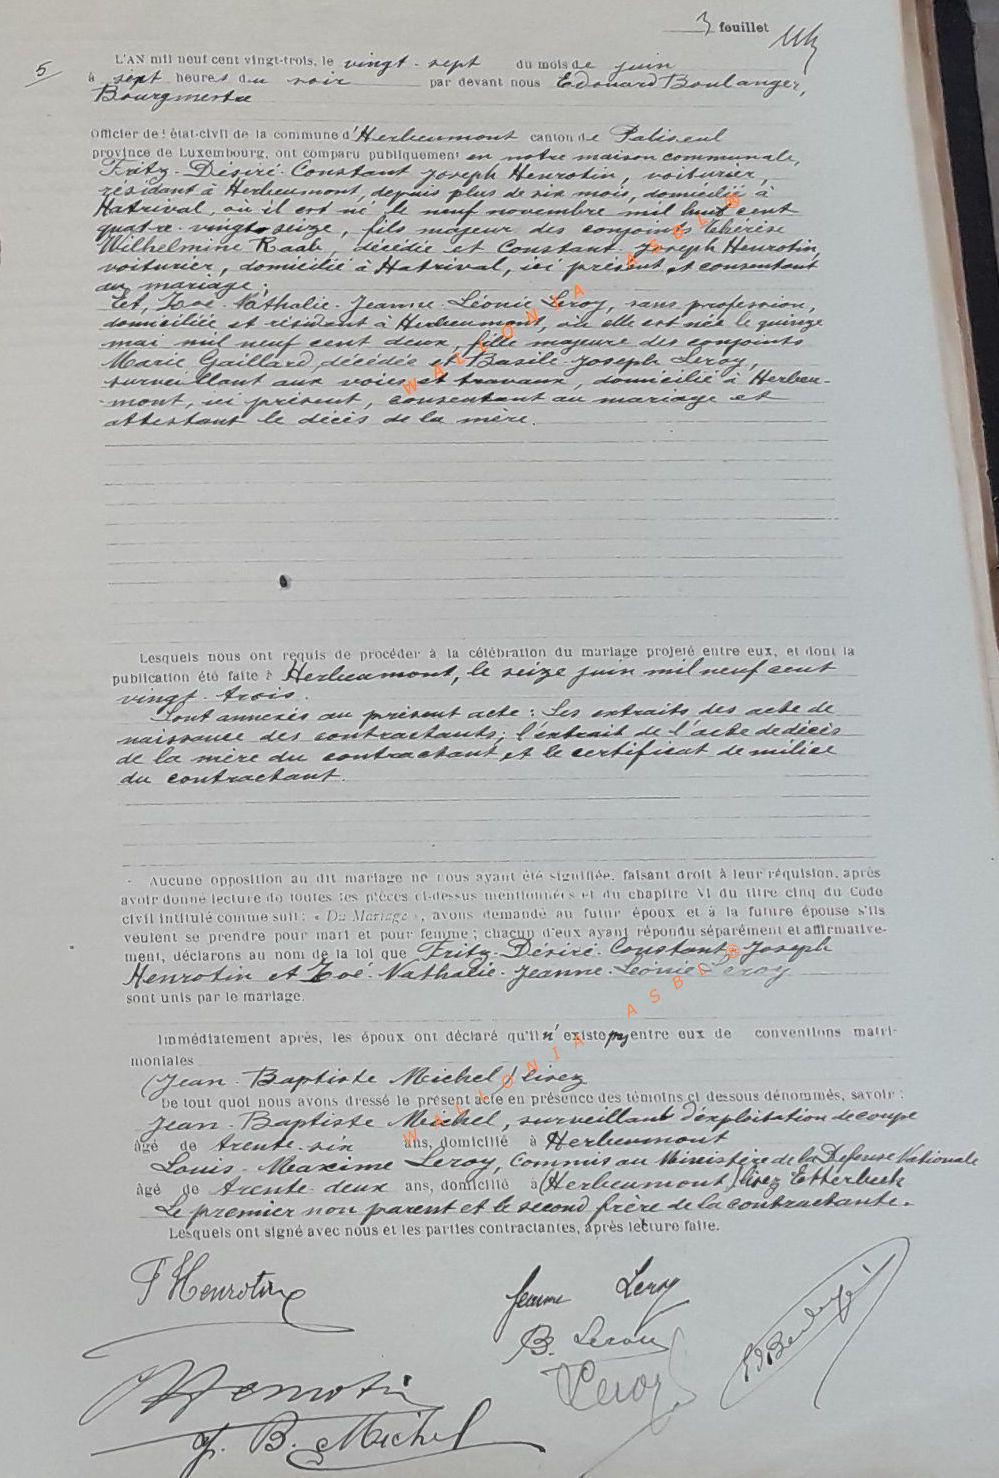 3 feuillet
5
L'AN mil neuf cent vingt-trois, le vingt-sept du mois de juin
à sept heures du soir par devant nous Edouard Boulanger,
Bourgmestre
Officier de l'état-civil de la commune d'Herbeumont canton de Paliseul
province de Luxembourg, ont comparu publiquement en notre maison communale,
Fritz-Désiré-Constant Joseph Henrotin, voiturier,
résidant à Herbeumont, depuis plus de six mois, domicilié à
Hatrival, où il est né le neuf novembre mil huit cent
quatre-vingt-seize, fils majeur des conjoints Thérèse
Wilhelmine Raab, décédée et Constant-Joseph Henrotin,
voiturier, domicilié à Hatrival, ici présent et consentant
au mariage;
Et, Zoé-Nathalie-Jeanne-Léonie Leroy, sans profession,
domiciliée et résidant à Herbeumont, où elle est née le quinze
mai mil neuf cent deux, fille majeure des conjoints
Marie Gaillard, décédée et Basile Joseph Leroy,
surveillant aux voies et travaux, domicilié à Herbeu-
mont, ici présent, consentant au mariage et
attestant le décès de la mère.
Lesquels nous ont requis de procéder à la célébration du mariage projeté entre eux, et dont la
publication été faite à Herbeumont, le seize juin mil neuf cent
vingt-trois.
Sont annexés au présent acte : Les extraits des acte de
naissance des contractants; l'extrait de l'acte de décès
de la mère du contractant et le certificat de milice
du contractant.
Aucune opposition au dit mariage ne nous ayant été signifiée, faisant droit à leur réquision, après
avoir donné lecture de toutes les pièces ci-dessus mentionnées et du chapitre VI du titre cinq du Code
civil intitulé comme suit : « Du Mariage », avons demandé au futur époux et à la future épouse s'ils
veulent se prendre pour mari et pour femme ; chacun d'eux ayant répondu séparément et affirmative-
ment, déclarons au nom de la loi que Fritz-Désiré-Constant-Joseph
Henrotin et Zoé-Nathalie-Jeanne-Léonie Leroy
sont unis par le mariage.
Immédiatement après, les époux ont déclaré qu'il n'existe pas entre eux de conventions matri-
moniales
(Jean-Baptiste Michel) lisez
De tout quoi nous avons dressé le présent acte en présence des témoins ci dessous dénommés, savoir :
Jean-Baptiste Michel, surveillant d'exploitation de coupe
âgé de trente-six ans, domicilié à Herbeumont
Louis-Maxime Leroy, Commis au Ministère de la Défense Nationale
âgé de trente-deux ans, domicilié à (Herbeumont) lisez Etterbeek
Le premier non parent et le second frère de la contractante.
Lesquels ont signé avec nous et les parties contractantes, après lecture faite.
F Henrotin
Jeanne Leroy
B. Leroy
Henrotin
Leroy
J. B. Michel
WALLONIA ASBL
WALLONIA ASBL